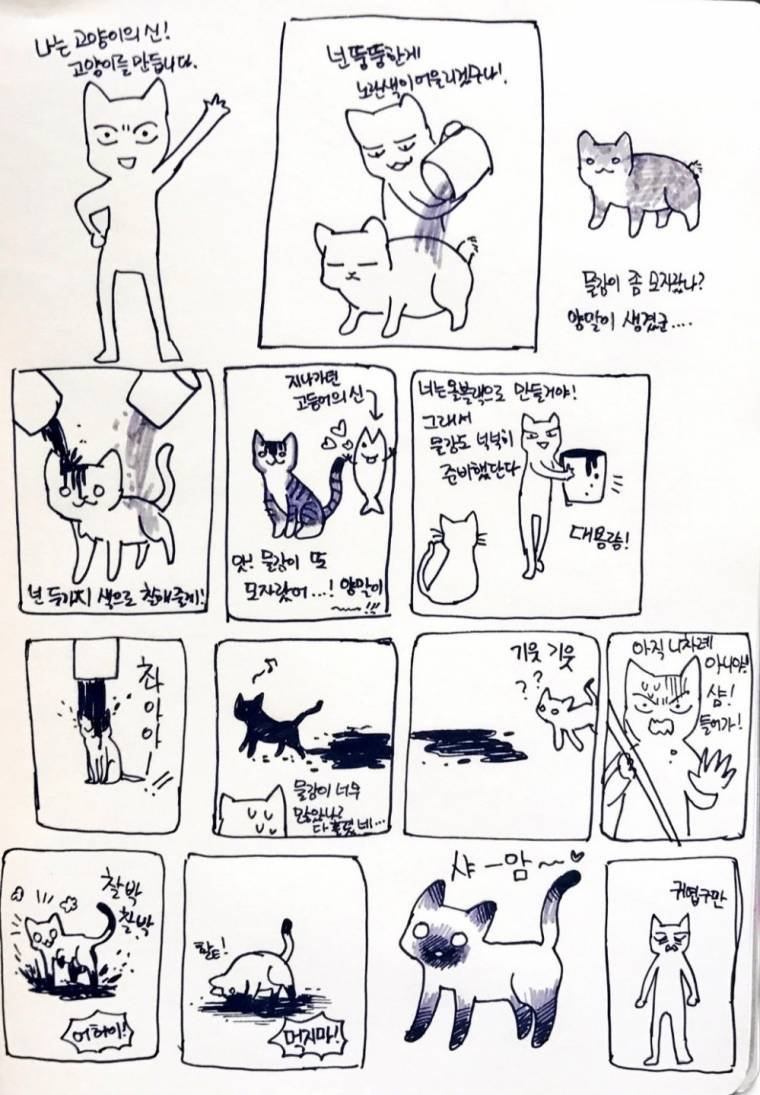 나는 고양이의 신!
고양이를 만듭니다.
넌 뚱뚱한게
노란색이 어울리겠구나!
물감이 좀 모자랐나?
양말이 생겼군....
넌 두가지 색으로 칠해줄게!
지나가던
고등어의 신
앗! 물감이 또
모자랐어...! 양말이
~~!!!
너는 올블랙으로 만들거야!
그래서
물감도 넉넉히
준비했단다
대용량!
촤
아
아
ㅡ
!!
물감이 너무
많았나?
다 흘렸네...
기웃 기웃
??
아직 니차례
아니야!
샴!
들어가!
찰박
찰박
어허이!
할트!
먹지마!
샤ㅡ암~~♥
귀엽구만